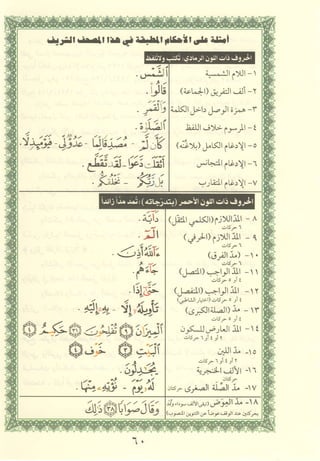 أمثلة على الأحكام المطبقة في هذا المصحف الشريف
الحروف ذات اللون الرمادي: تكتب ولا تلفظ
١- اللام الشمسية ٱلشَّمْسِ.
٢- ألف التفريق (الجماعة) قَالُوا۟.
٣- همزة الوصل داخل الكلمة وَٱلْقَمَرِ.
٤- المرسوم خلاف اللفظ ٱلصَّلَوٰةَ.
٥- الإدغام الكامل (بلا غنّه) كَأَن لَّمْ - مُصَدِّقًا لِّمَا - عَدُوٌّ لِّي - فَوَيْلٌ لِّلَّذِينَ
٦- الإدغام المتجانس أَثْقَلَت دَّعَوَا - لَقَد تَّقَطَّعَ.
٧- الإدغام المتقارب بَل رَّبُّكُمْ - نَخْلُقكُّم.
الحروف ذات اللون الأحمر (بتدرجاته): تمد مداً زائداً
٨- المدّ اللازم (الكلمي المثقل) دَآبَّةٍ.
٦ حركات
٩- المدّ اللازم (الحرفي) الٓمٓر.
٦ حركات
١٠- (مدّ الفرق) ءَآللَّهُ أَذِنَ.
٦ حركات
١١- المدّ الواجب (المتصل) جَآءَهُم
٤ أو ٥ حركات
١٢- المدّ الواجب (المنفصل) حَتَّىٰٓ إِذَا.
٤ أو ٥ حركات
١٣- مدّ (الصلة الكبرى) تَأْوِيلَهُۥٓ إِلَّا. بِهِۦٓ إِلَيْهِ.
٤ أو ٥ حركات
١٤- المدّ العارض للسكون ٱلْمِيزَانَ تُفْلِحُونَ حَكِيمٌ
٢ أو ٤ أو ٦ حركات
١٥- مدّ اللين ٱلْبَيْتِ خَوْفٍ
٢ أو ٤ أو ٦ حركات
١٦- الألف الخنجرية يُجَٰدِلُونَ.
حركتان
١٧- مدّ الصّلة الصغرى حركتان لَهُۥ يَوْمَ - نُؤْتِهِۦ مِنْهَا.
١٨- مدّ العوض وَقَالَ صَوَابًا ٣٨ ذَٰلِكَ
بحركتين عند الوقف عوضاً عن التنوين المنصوب
٦٠